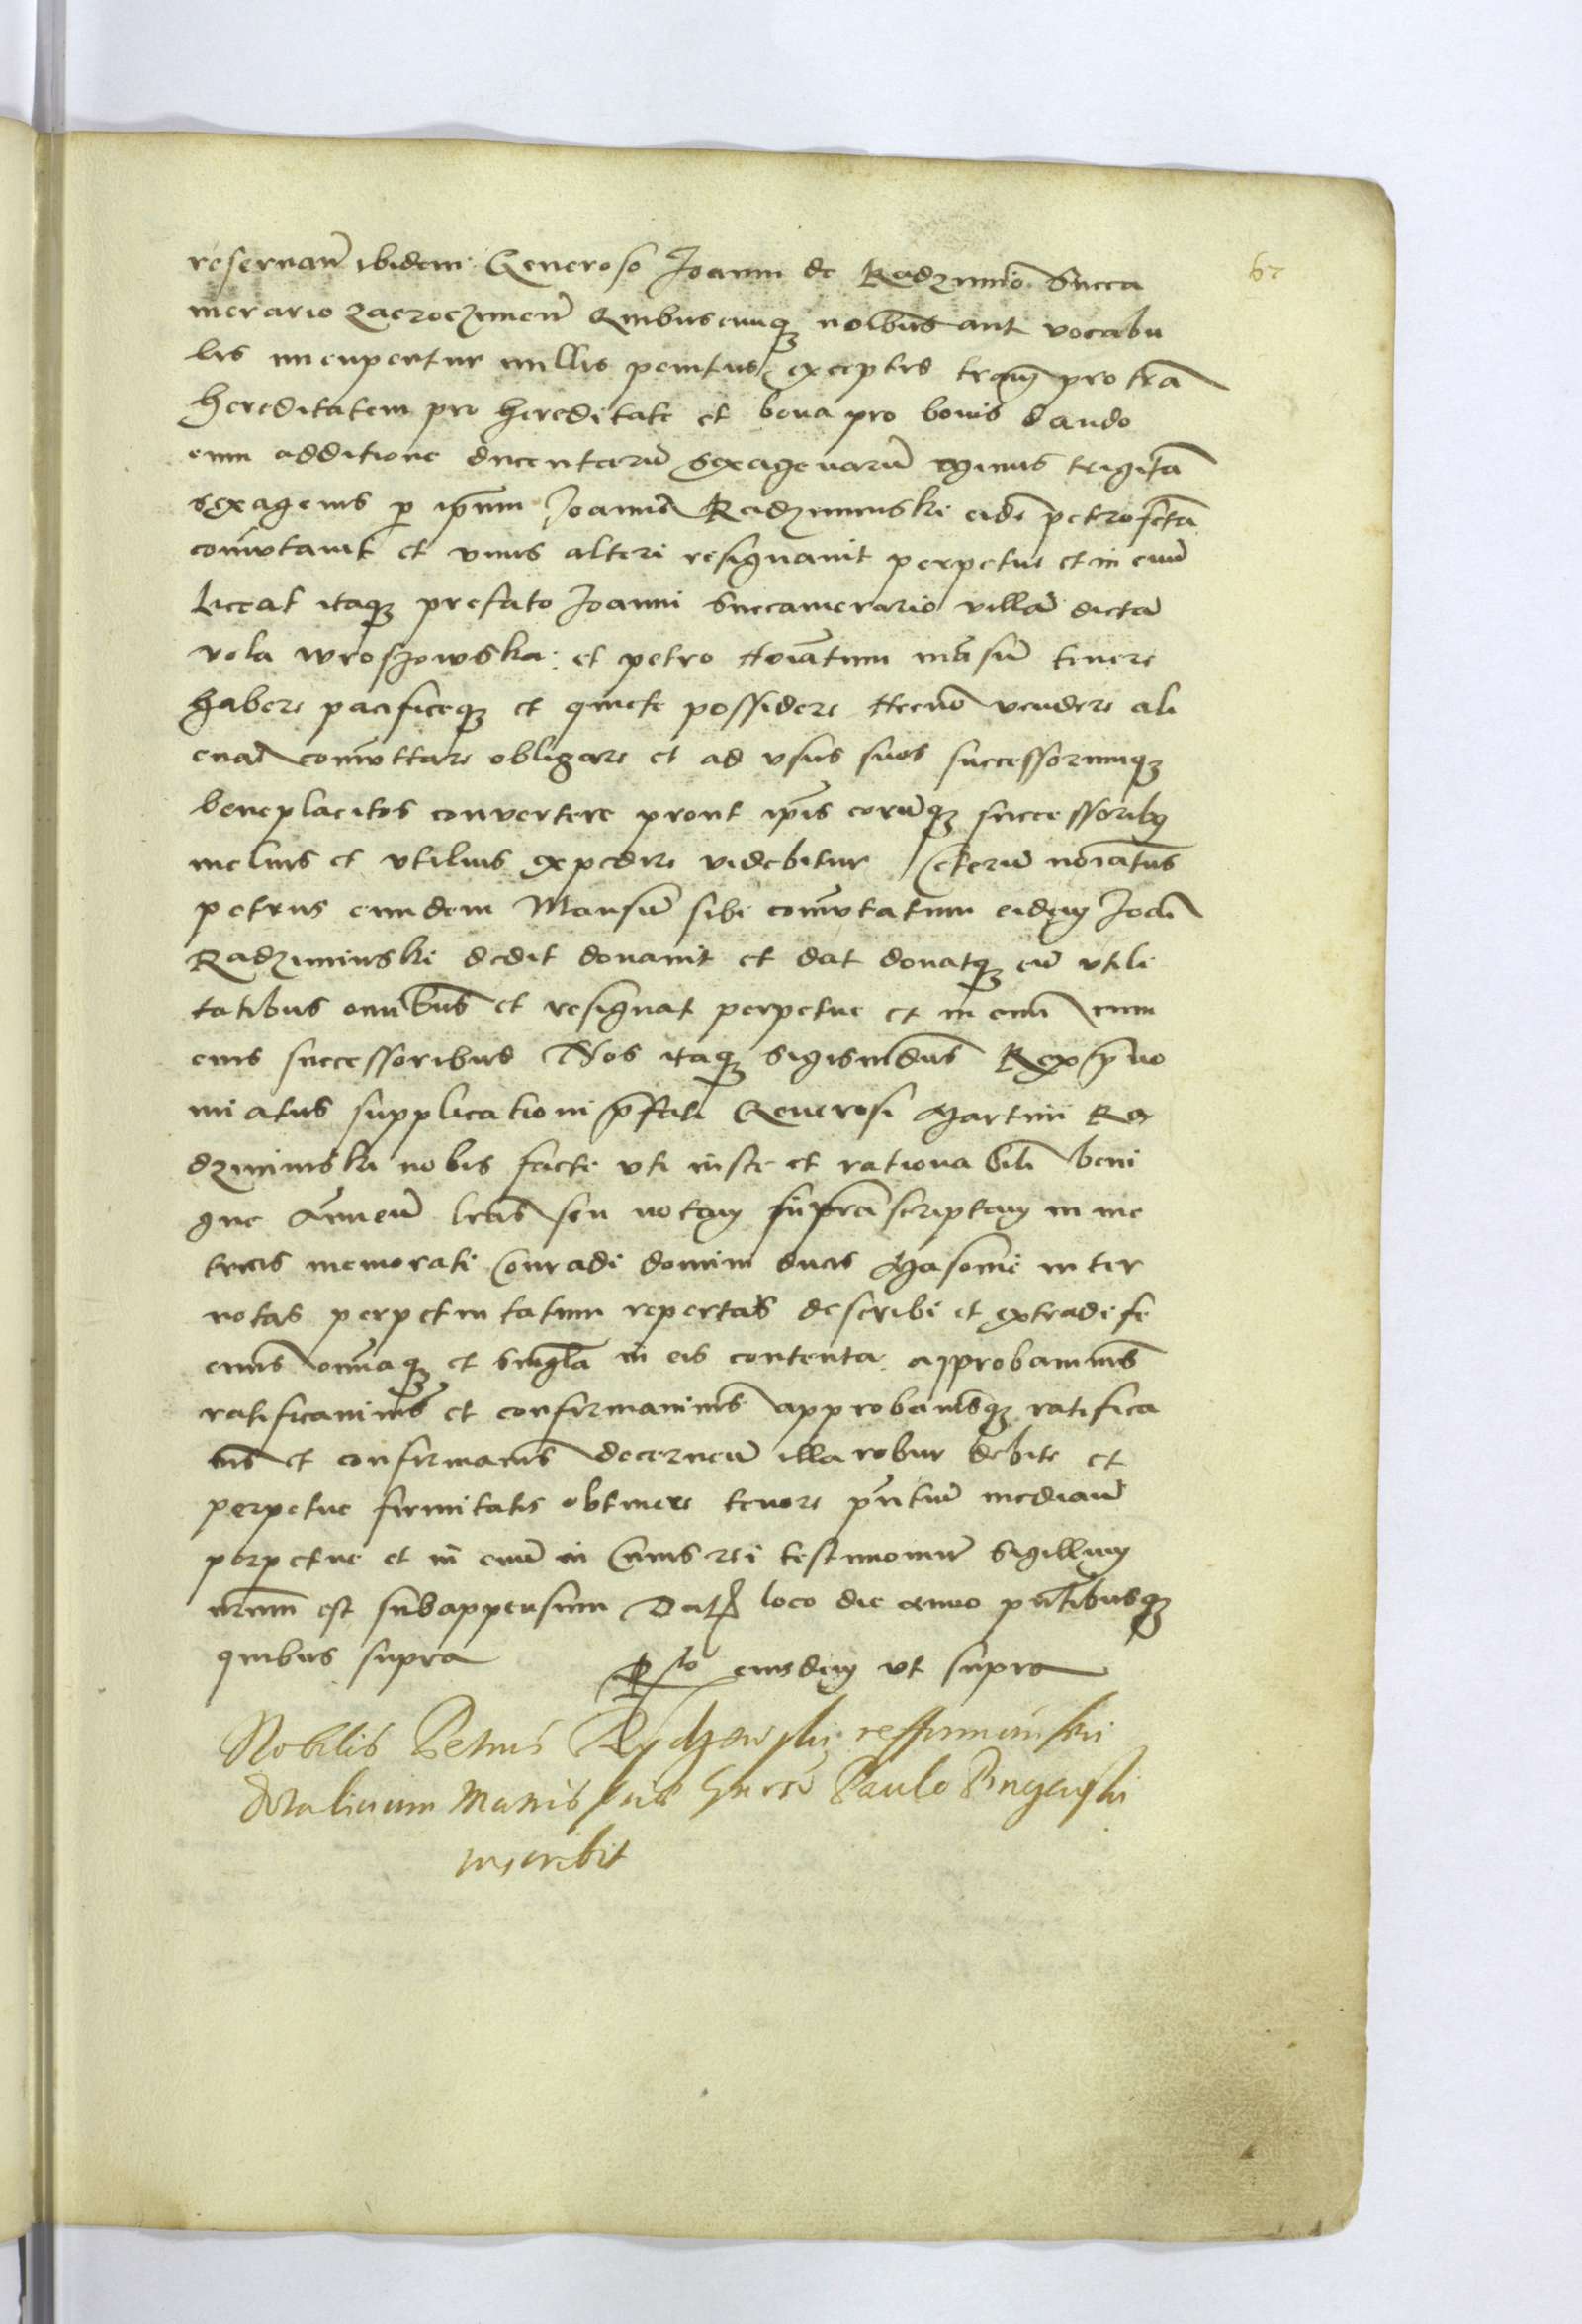 67
reseruan̄ ibidem Generoso Joanni de Radzimino Succa
merario Zacroczimen̄ Quibuscunq; noībus aut vocabu
lis nuncupentur nullis penitus exceptis terram pro terra
hereditatem pro hereditate et bona pro bonis dando
cum additione ducentarū sexagenarū minus trigīta
sexagenis p ipsum Joannē Radzyminski eidē petro
com̄utauit et vnus alteri resignauit perpetue et in euū
Liceat itaq; prefato Joanni Succamerario villā dictā
vola wroszowska et petro noīatum mansū tenere
habere pacificeq; et quiete possidere vendere ali
enare com̄uttare obligare et ad vsus suos successorumq;
beneplacitos convertere prout ip̄is eorūq; successorib9
melius et vtilius expedire videbitur Ceterū noīatus
petrus eundem Mansū sibi com̄utatum eidem Joāī
Radziminski dedit donauit et dat donatq; cū vtili
tatibus omībus et resignat perpetue et in euū cum
eius successoribus Nos itaq; Sigismūdus Rex p̄no
miatus supplicationi p̄fati Generosi Martini Ra
dziminski nobis facte vti iuste et rationabili beni
gne Annuen̄ l̄ras seu notam suprascriptam in me
tricis memorati Conradi domini ducis Masouie inter
notas perpetuitatum repertas describi et extradi fe
cimus om̄iaq; et singula in eis contenta approbauimus
ratificauimus et confirmauimus approbamusq; ratifica
mus et confirmamus decernen̄ illa robur debite et
perpetue firmitatis obtinere tenore p̄ntiū median̄
perpetue et in euū in Cuius rei testimoniū Sigillum
nr̄um est subappensum Dat loco die anno p̄ntibusq;
quibus supra R̄to eiusdem vt supra
Nobilis Petrus
dotalicium Paulo
inscribit